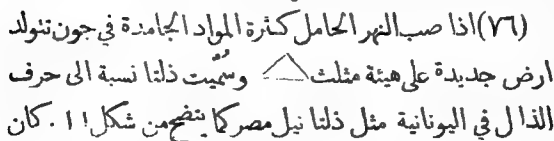 (٧٦) اذا صب النهر الحامل كثرة المواد الجامدة في جون تتولد
ارض جديدة على هيئة مثلث وسُمّيت ذلتا نسبة الى حرف
الذال في اليونانية مثل ذلتا نيل مصر كما يتضح من شكل ١١. كان